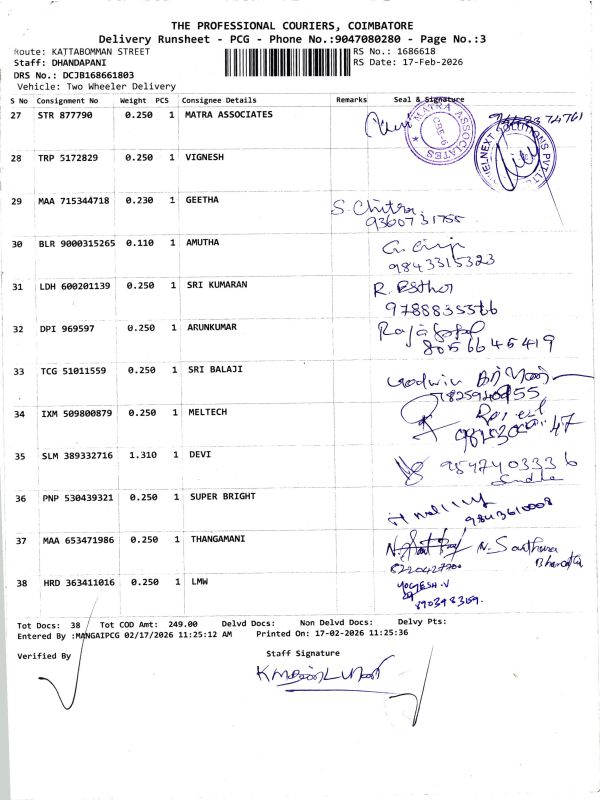 THE PROFESSIONAL COURIERS, COIMBATORE
Delivery Runsheet - PCG - Phone No.:9047080280 - Page No.:3
Route: KATTABOMMAN STREET RS No.: 1686618
Staff: DHANDAPANI RS Date: 17-Feb-2026
DRS No.: DCJB168661803
Vehicle: Two Wheeler Delivery
S No Consignment No Weight PCS Consignee Details Remarks Seal & Signature
27 STR 877790 0.250 1 MATRA ASSOCIATES
MATRA ASSOCIATES CBE-6
28 TRP 5172829 0.250 1 VIGNESH
29 MAA 715344718 0.230 1 GEETHA S. Chitra
9360731755
30 BLR 9000315265 0.110 1 AMUTHA
9843315323
31 LDH 600201139 0.250 1 SRI KUMARAN R. Esther
9788835566
32 DPI 969597 0.250 1 ARUNKUMAR
8056645419
33 TCG 51011559 0.250 1 SRI BALAJI Godwin
34 IXM 509800879 0.250 1 MELTECH
35 SLM 389332716 1.310 1 DEVI 9547403336
36 PNP 530439321 0.250 1 SUPER BRIGHT
9843610008
37 MAA 653471986 0.250 1 THANGAMANI
38 HRD 363411016 0.250 1 LMW YOGESH.V
Tot Docs: 38 Tot COD Amt: 249.00 Delvd Docs: Non Delvd Docs: Delvy Pts:
Entered By :MANGAIPCG 02/17/2026 11:25:12 AM Printed On: 17-02-2026 11:25:36
Verified By Staff Signature